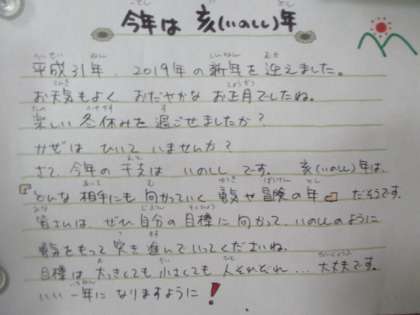 今年は 亥(いのしし)年
平成31年、2019年の新年を迎えました。
お天気もよく おだやかな お正月でしたね。
楽しい 冬休みを 過ごせましたか？
かぜは ひいて いませんか？
さて、今年の 干支は いのしし です。 亥(いのしし)年は、
『どんな 相手にも 向かっていく 勇気や冒険の年』だそうです。
皆さんは、ぜひ 自分の 目標に 向かって、いのししのように
勇気をもって 突き進んでいってくださいね。
目標は 大きくても 小さくても 人それぞれ…大丈夫です。
いい 一年に なりますように！